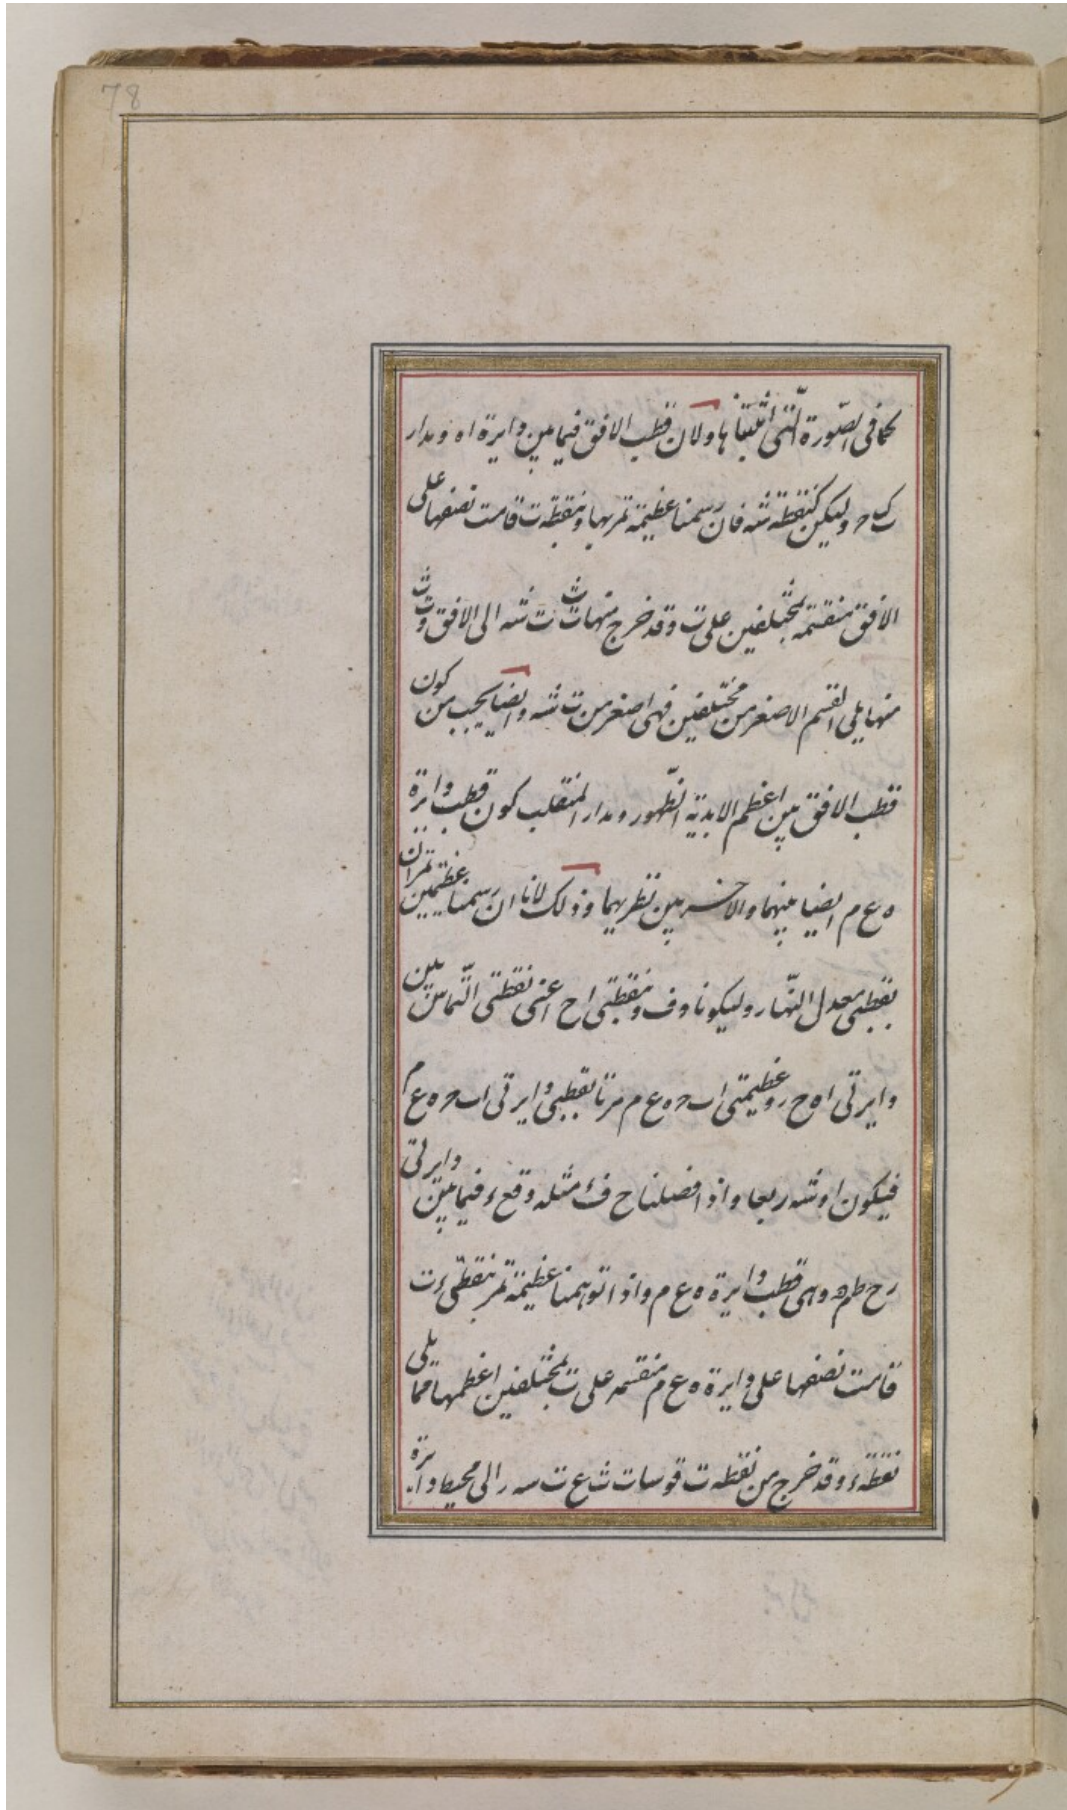 78
كما في الصّورة الّتى اثبتناها ولان قطب الافق فيما بين دايرة اه ومدار
ك ح وليكن كنقطة شه فان رسمنا عظيمة تمر بها وبنقطة ت قامت نصفها على
الافق منقسمة بمختلفين على ت وقد خرج منها ت ث ت شه الى الافق و ت ث
منها يلى القسم الاصغر من مختلفين فهى اصغر من ت شه وايضا يجب من كون
قطب الافق بين اعظم الابدية الظّهور ومدار المنقلب كون قطب دايرة
ه ع م ايضا بينهما والاخر بين نظريهما وذلك لانا ان رسمنا عظيمتين تمران
بقطبى معدل النّهار وليكونا و ف وبنقطتى ا ح اعنى نقطتى التّماس بين
دايرتى ا ه ح ر وعظيمتى ا ب ح ه ع م مرتا بقطبى دايرتى ا ب ح ه ع م
فيكون ا و شه ربعا واذا فصلنا ح ف ء مثله وقع ء فيما بين دايرتى
ر ح ط م ه وهى قطب دايرة ه ع م واذا توهمنا عظيمة تمر بنقطتى ء ت
قامت نصفها على دايرة ه ع م منقسمة على ت بمختلفين اعظمهما مما يلى
نقطة ء وقد خرج من نقطة ت قوسا ت ث ع ت سه ر الى محيط دايرة